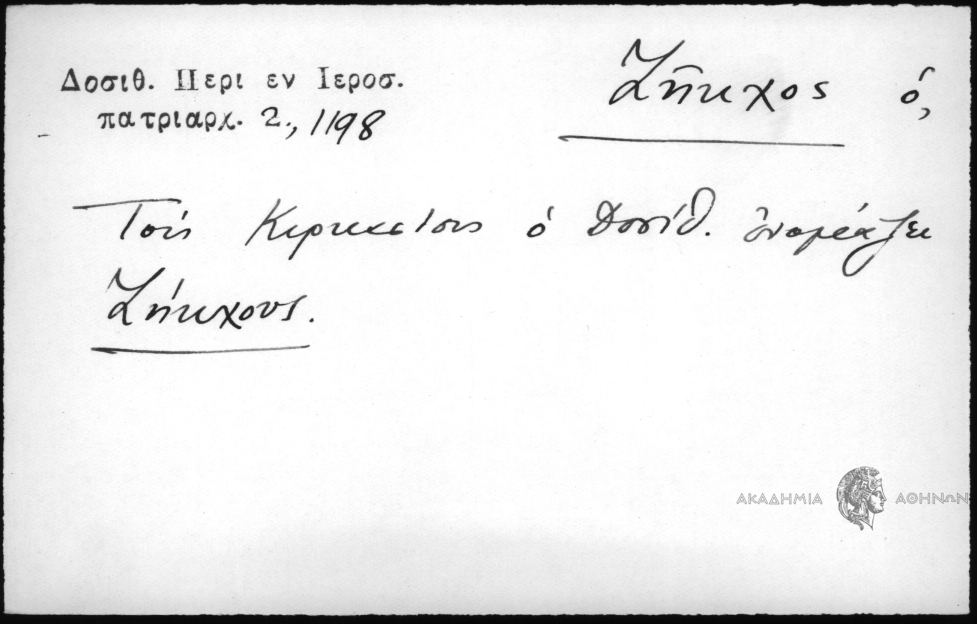 Δοσιθ. Περι εν Ιεροσ.
πατριαρχ. 2., 1198
Ζῆκχος ὁ,
Τοὺς Κιρκασίους ὁ Δοσίθ. ὀνομάζει
Ζήκχους.
ΑΚΑΔΗΜΙΑ ΑΘΗΝΩΝ